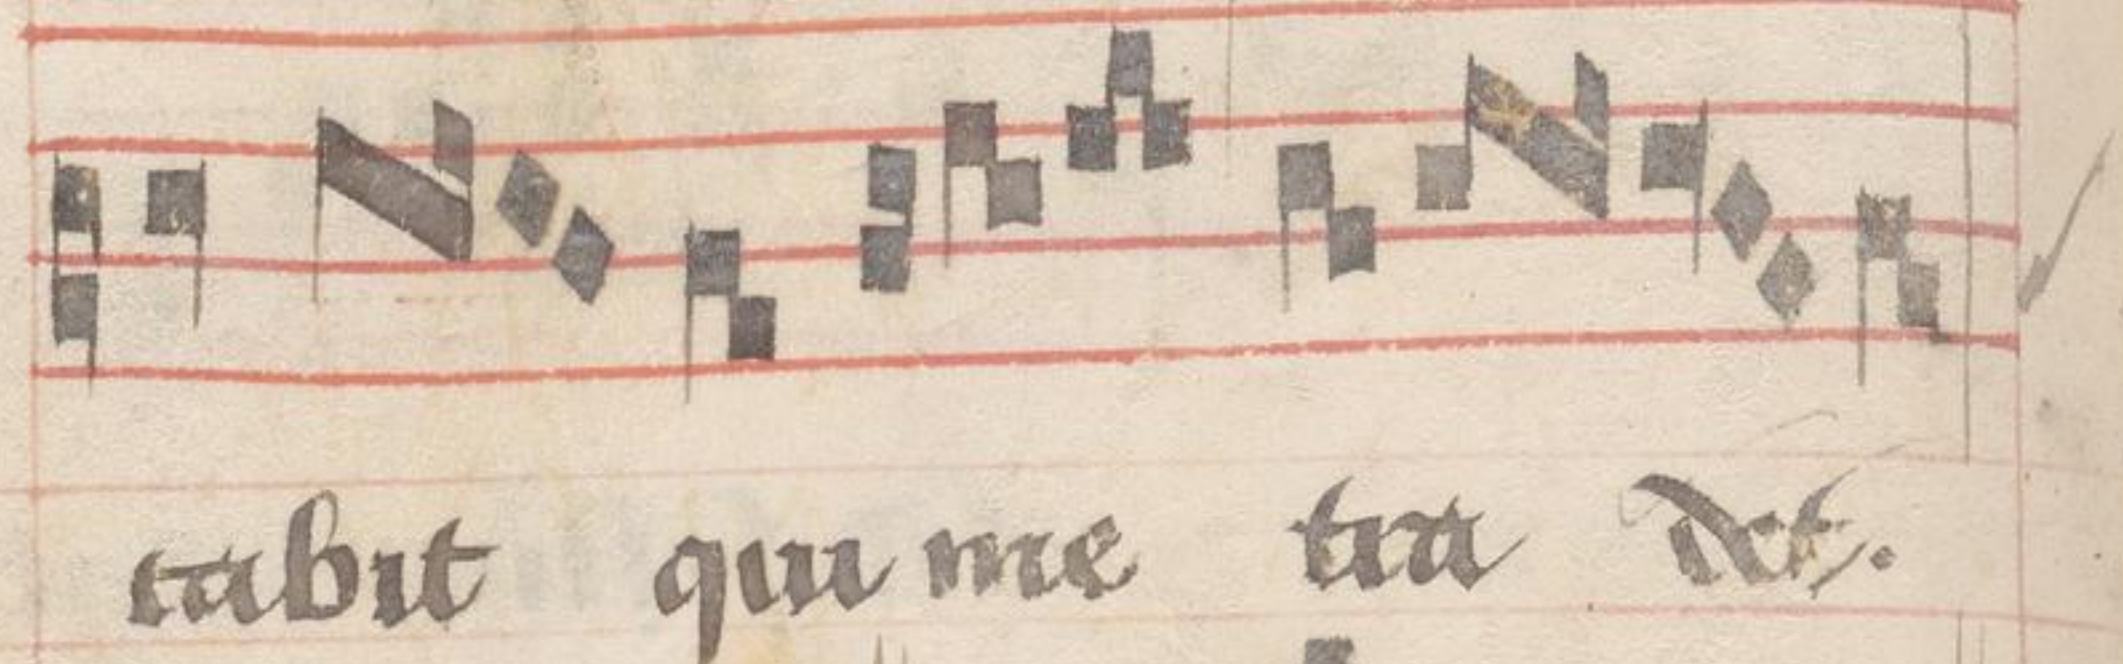 tabit qui me tra det.